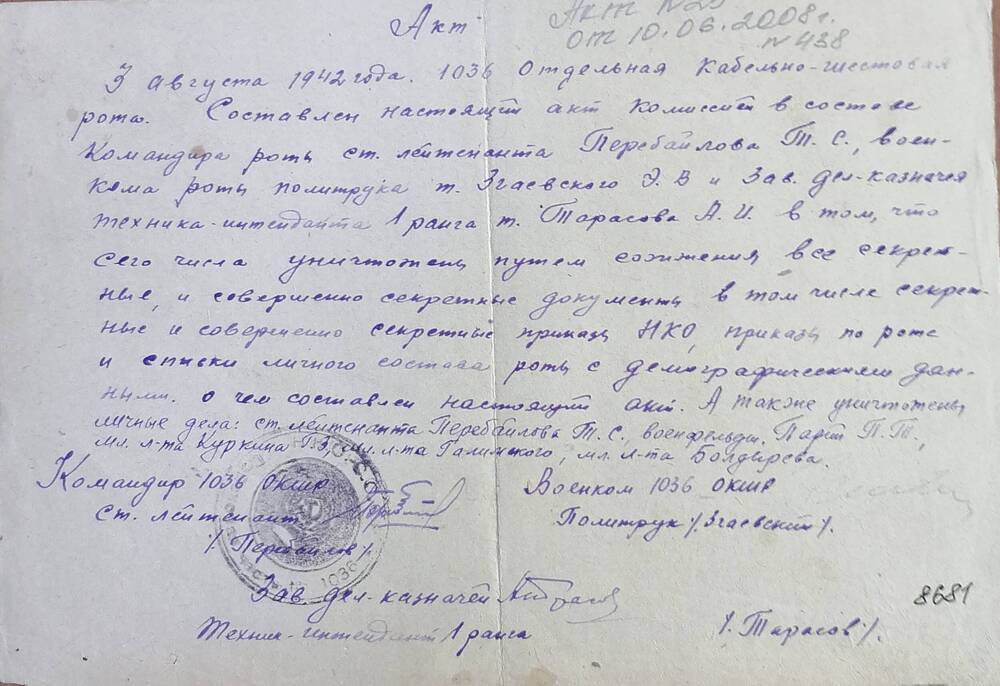 Акт
Акт N23
от 10.06.2008г.
N 438
3 августа 1942 года. 1036 Отдельная Кабельно-шестовая
рота. Составлен настоящий акт Комиссий в составе
Командира роты ст. лейтенанта Перебайлова Т. С., воен-
кома роты политрука т. Згаевского Э. В и Зав. дел-казначея
техника-интенданта 1 ранга т. Тарасова А. И. в том, что
сего числа уничтожены путем сожжения все секрет-
ные, и совершенно секретные документы в том числе секрет-
ные и совершенно секретные приказы НКО, приказы по роте
и списки личного состава роты с демографическими дан-
ными. о чем составлен настоящий акт. А также уничтожены
личные дела: ст. лейтенанта Перебайлова Т. С, военфельдш. П. Т.,
мл. л-та Куркина, мл. л-та Галимского, мл. л-та Болдырева.
Командир 1036 ОКШР
Военком 1036 ОКШР
ст. лейтенант
Политрук /. Згаевский /.
/. Перебайлов /.
1036
Зав. дел-казначей
8681
Техник-интендант 1 ранга
/. Тарасов /.